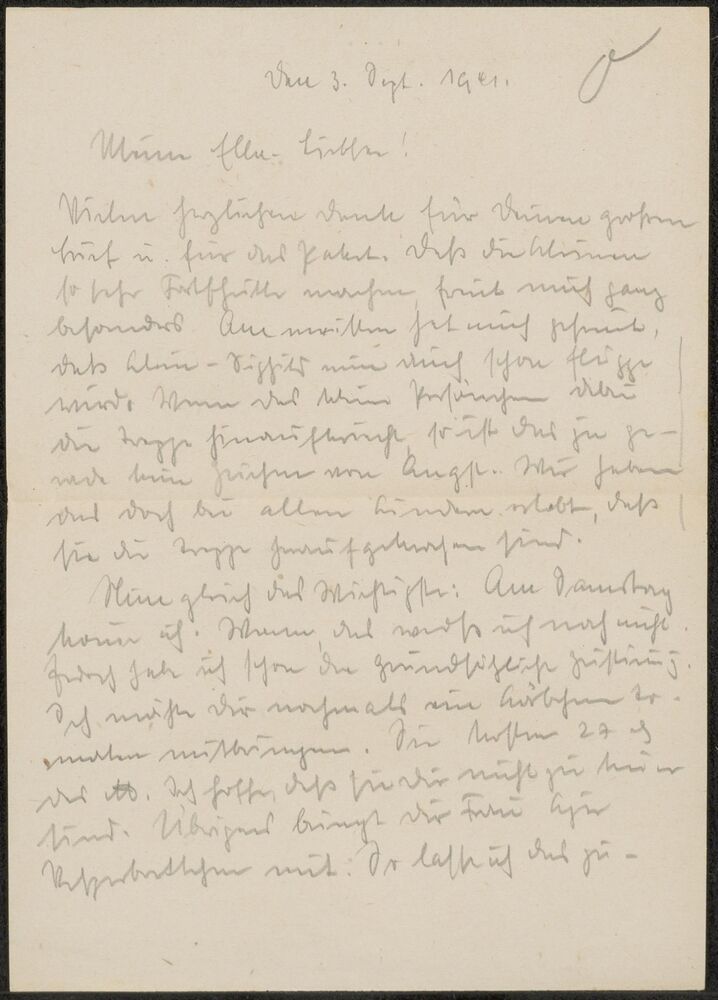 Den 3. Sept. 1941.
Meine Ella-Liebste!
Vielen herzlichen Dank für Deinen großen
Brief u. für das Paket. Daß die Kleinen
so sehr Fortschritte machen, freut mich ganz
besonders. Am meisten hat mich gefreut,
daß Klein-Sighild nun auch schon flügge
wird. Wenn das kleine Persönchen dabei
die Treppe hinaufkriecht, so ist das ja ge-
rade kein Zeichen von Angst. Wir haben
das doch bei allen Kindern erlebt, daß
sie die Treppe hinaufgekrochen sind.
Nun gleich das Wichtigste: Am Samstag
komm ich. Wann, das weiß ich noch nicht.
Jedoch habe ich schon die grundsätzliche Zustimmg.
Ich möchte Dir nochmals ein Körbchen To-
maten mitbringen. Sie kosten 27 ₰
das ℔. Ich hoffe, daß sie Dir nicht zu teuer
sind. Übrigens bringt Dir Frau
Vesperbrettchen mit. So lasse ich das zu-